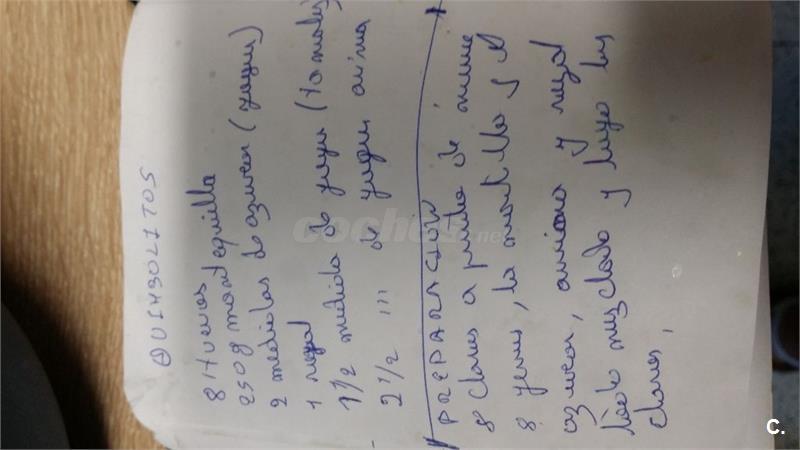 QUIMBOLITOS
8 Huevos
250g mantequilla
2 medidas de azucar (yogur)
1 royal
1 1/2 medida de yogur
2 1/2 ''' de yogur arina
PREPARACION
8 claras a punto de nieve
8 yemas, la y
azucar, y royal
todo mezclado y luego las
claras,
coches.net
C.